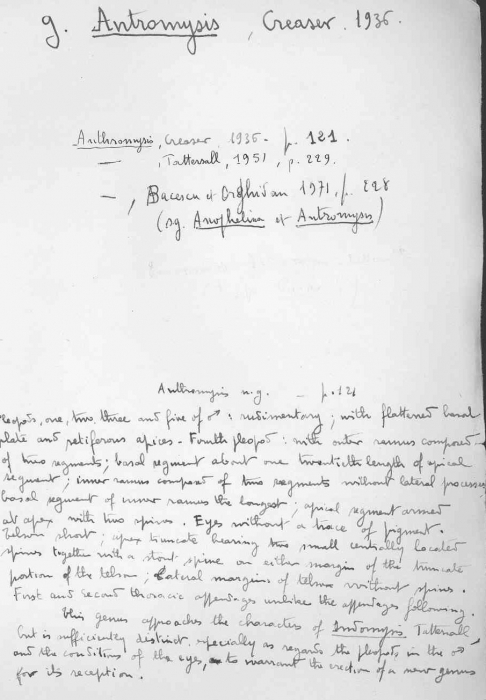 g. Antromysis, Creaser. 1936.
Anthromysis, Creaser 1936 - p. 121.
— , Tattersall, 1951, p. 229.
— , Bacescu et Orghidan 1971, p. 228
(sg. Anophelina et Antromysis)
Anthromysis n.g. - p. 121
Pleopods, one, two, three and five of ♂ : rudimentary; with flattened basal
plate and setiferous apices - Fourth pleopod : with outer ramus composed
of two segments; basal segment about one twentieth length of apical
segment; inner ramus composed of two segments without lateral processes;
basal segment of inner ramus the longest; apical segment armed
at apex with two spines. Eyes without a trace of pigment.
Telson short; apex truncate bearing two small centrally located
spines together with a stout spine on either margin of the truncate
portion of the telson; lateral margins of telson without spines.
First and second thoracic appendages unlike the appendages following.
This genus approaches the characters of Indomysis Tattersall
but is sufficiently distinct, especially as regards the pleopods in the ♂
and the condition of the eyes, to warrant the erection of a new genus
for its reception.